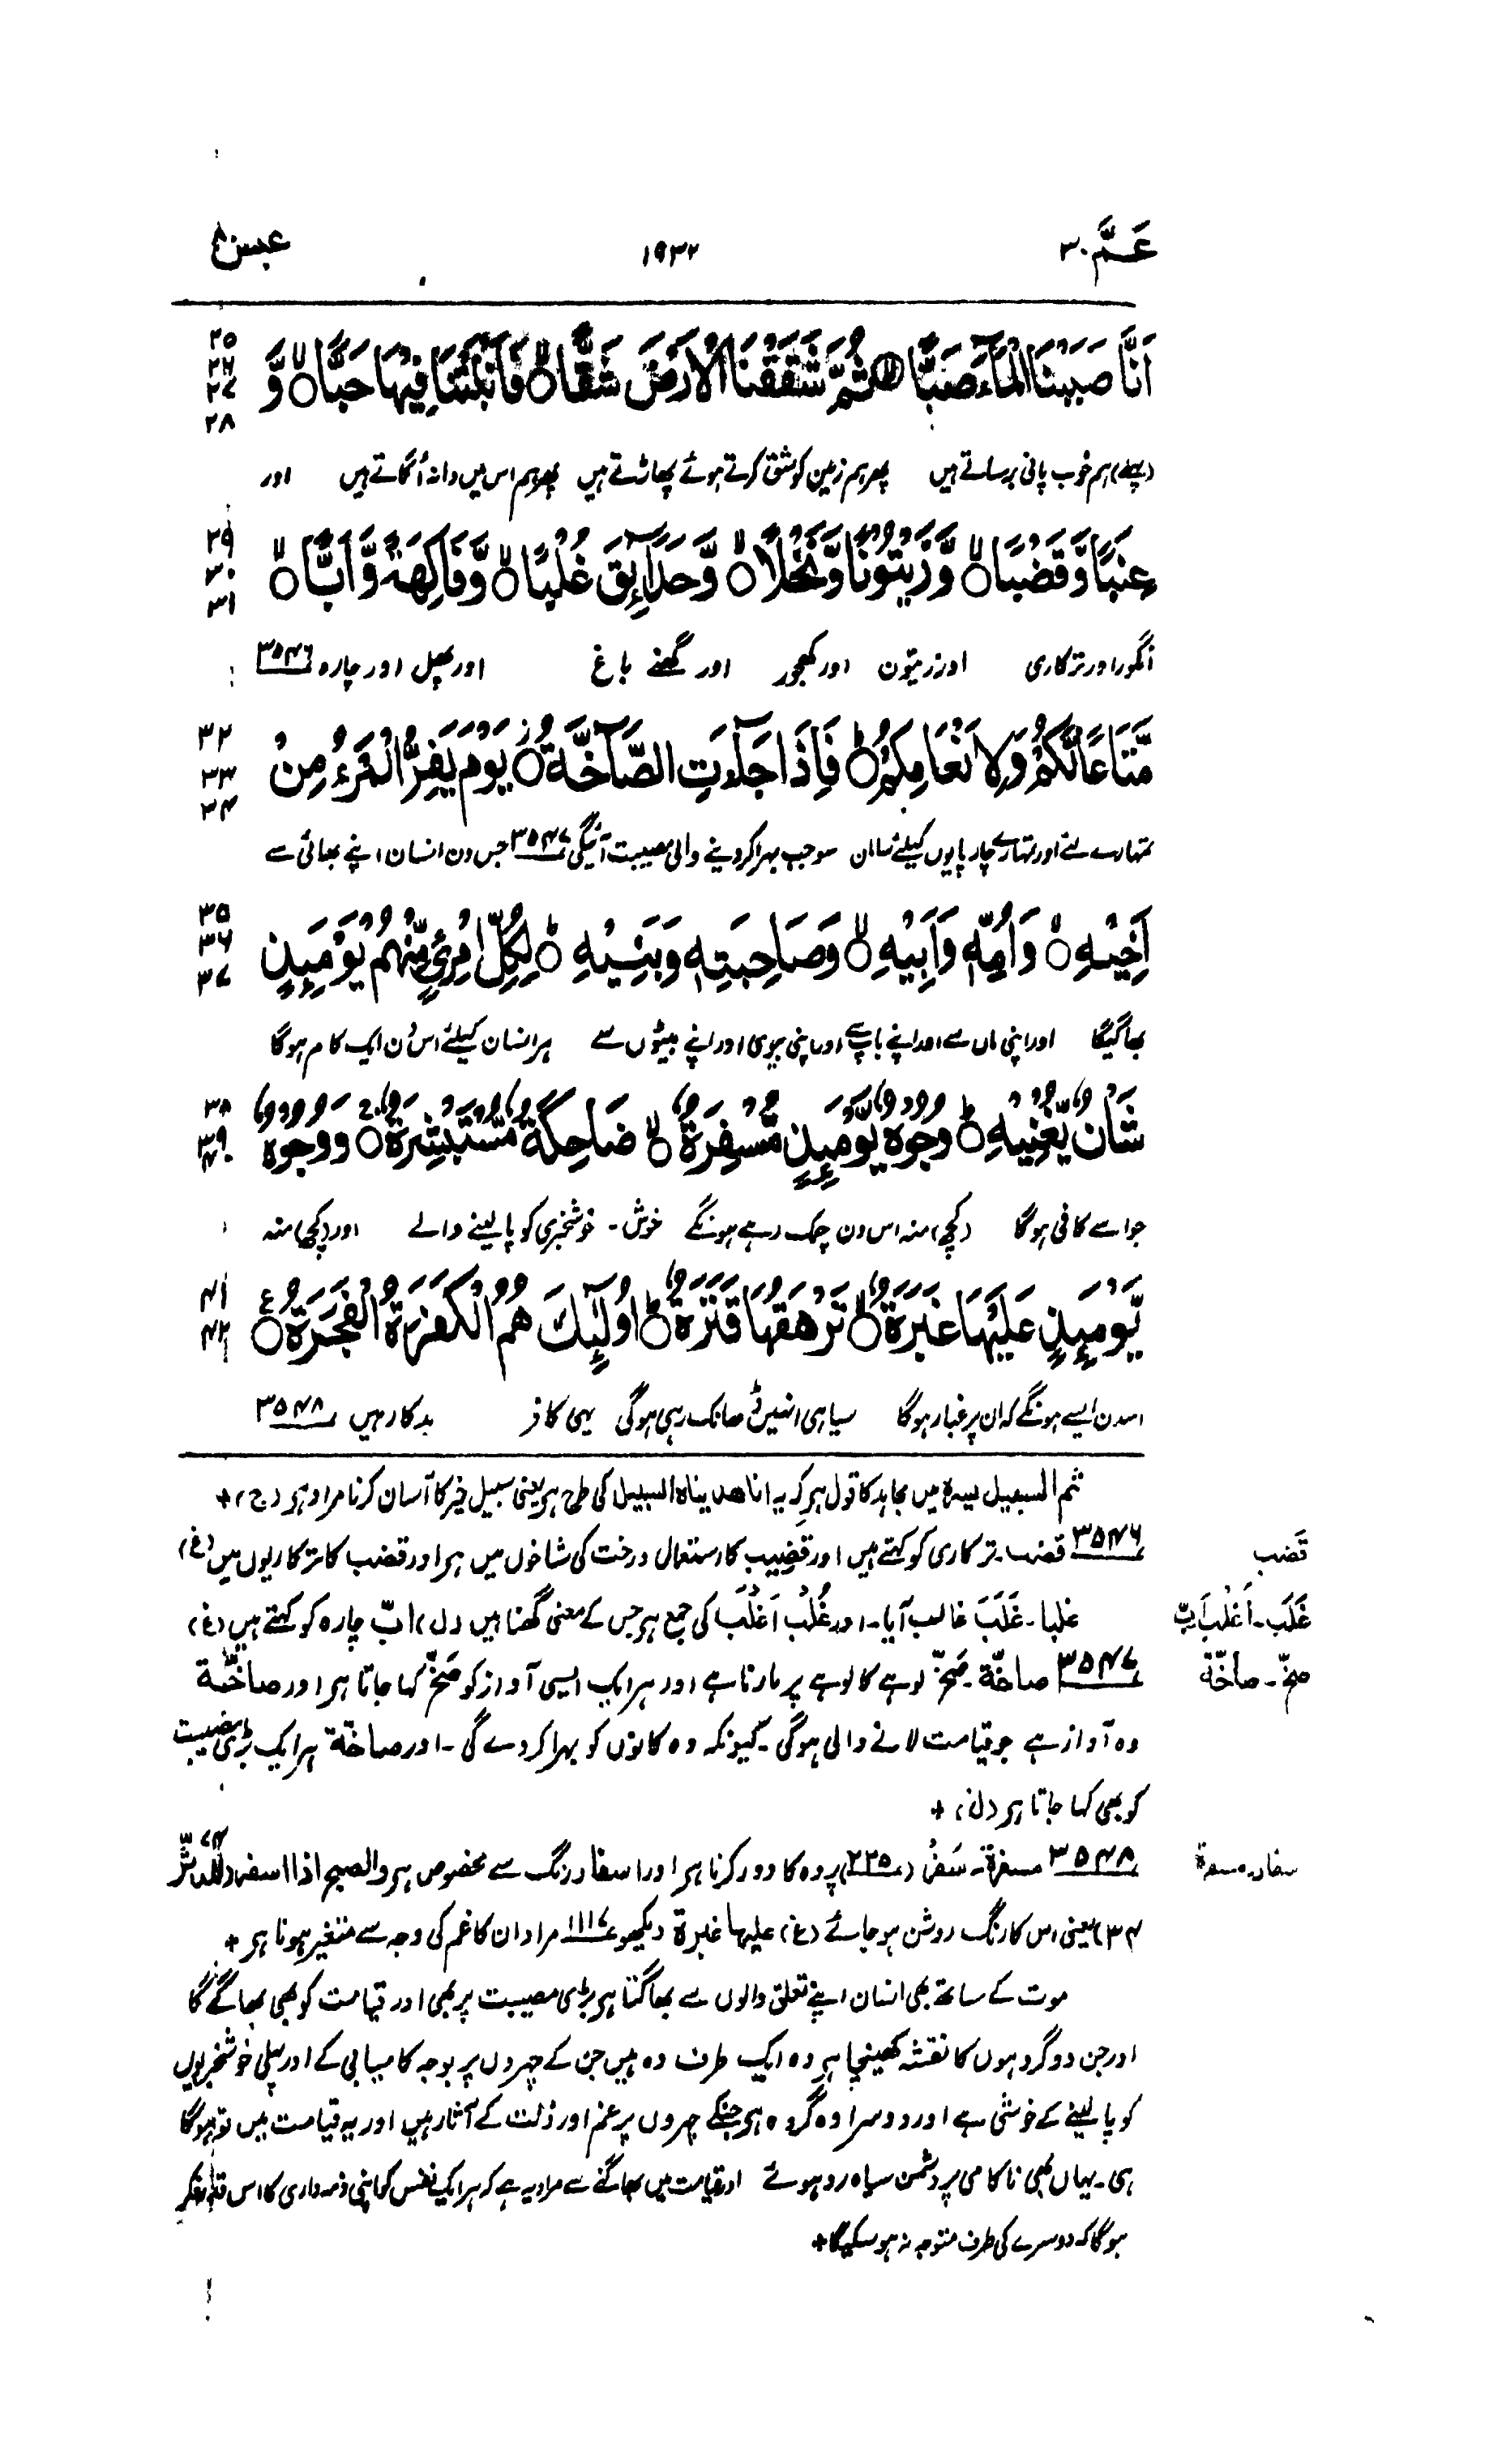 عَمَّ ۳۰ ۱۹۳۲ عبس ۸۰
اَنَّا صَبَبْنَا الْمَآءَ صَبًّا ۙ ثُمَّ شَقَقْنَا الْاَرْضَ شَقًّا ۙ فَاَنْۢبَتْنَا فِيْهَا حَبًّا ۙ وَّ
۲۵
۲۶
۲۷
۲۸
(پہلے) ہم خوب پانی برساتے ہیں پھر ہم زمین کو شق کرتے ہوئے پھاڑتے ہیں پھر ہم اس میں دانہ اُگاتے ہیں اور
عِنَبًا وَّقَضْبًا ۙ وَّزَيْتُوْنًا وَّنَخْلًا ۙ وَّحَدَآئِقَ غُلْبًا ۙ وَّفَاكِهَةً وَّاَبًّا ۙ
۲۹
۳۰
۳۱
انگور اور ترکاری اور زیتون اور کھجور اور گھنے باغ اور پھل اور چارہ ۳۵۴۶
مَّتَاعًا لَّكُمْ وَلِاَنْعَامِكُمْ ؕ فَاِذَا جَآءَتِ الصَّآخَّةُ ۫ يَوْمَ يَفِرُّ الْمَرْءُ مِنْ
۳۲
۳۳
۳۴
تمہارے لئے اور تمہارے چارپایوں کیلئے سامان سو جب بہرا کردینے والی مصیبت آئیگی ۳۵۴۷ جس دن انسان اپنے بھائی سے
اَخِيْهِ ۙ وَاُمِّهٖ وَاَبِيْهِ ۙ وَصَاحِبَتِهٖ وَبَنِيْهِ ؕ لِكُلِّ امْرِئٍ مِّنْهُمْ يَوْمَئِذٍ
۳۵
۳۶
۳۷
بھاگیگا اور اپنی ماں سے اور اپنے باپ سے اور اپنی بیوی اور اپنے بیٹوں سے ہر انسان کیلئے اس دن ایک کام ہوگا
شَاْنٌ يُّغْنِيْهِ ؕ وُجُوْهٌ يَّوْمَئِذٍ مُّسْفِرَةٌ ۙ ضَاحِكَةٌ مُّسْتَبْشِرَةٌ ۚ وَوُجُوْهٌ
۳۸
۳۹
۴۰
جو اسے کافی ہوگا (کچھ) منہ اس دن چمک رہے ہونگے خوش۔ خوشخبری کو پالینے والے اور (کچھ) منہ
يَّوْمَئِذٍ عَلَيْهَا غَبَرَةٌ ۙ تَرْهَقُهَا قَتَرَةٌ ؕ اُولٰٓئِكَ هُمُ الْكَفَرَةُ الْفَجَرَةُ ع
۴۱
۴۲
اسدن ایسے ہونگے کہ ان پر غبار ہوگا سیاہی انہیں ڈھانک رہی ہوگی یہی کافر بدکار ہیں ۳۵۴۸
ثم السبیل یسرہ میں مجاہد کا قول ہے کہ یہ انا ھدیناہ السبیل کی طرح ہے یعنی سبیل خیر کا آسان کرنا مراد ہے (ج) +
قَضب
۳۵۴۶ قضب۔ ترکاری کو کہتے ہیں اور قَضِیب کا استعمال درخت کی شاخوں میں ہے اور قضب کا ترکاریوں میں (غ)
غَلَبَ۔ اَغْلَب اَبّ
غلبا۔ غَلَبَ غالب آیا۔ اور غُلْب اَغْلَبُ کی جمع ہے جس کے معنی گھنا ہیں (ل) ابّ چارہ کو کہتے ہیں (غ)
صخّ۔ صاخّة
۳۵۴۷ صاخّة۔ صَخّ لوہے کا لوہے پر مارنا ہے اور ہر ایک ایسی آواز کو صَخّ کہا جاتا ہے اور صاخّة
وہ آواز ہے جو قیامت لانے والی ہوگی۔ کیونکہ وہ کانوں کو بہرا کردے گی۔ اور صاخّة ہر ایک بڑی مصیبت
کو بھی کہا جاتا ہے (ل) +
سفار۔ مسفرة
۳۵۴۸ مسفرة۔ سَفْر (۲۳۵) پردہ کا دور کرنا ہے اور اسفار رنگ سے مخصوص ہے والصبح اذا اسفر (المدثر ۷۴
۳۴) یعنی اس کا رنگ روشن ہوجائے (غ) علیہا غبرة دیکھو ۱۱۱۷ مراد ان کا غم کی وجہ سے متغیر ہونا ہے +
موت کے ساتھ بھی انسان اپنے تعلق والوں سے بھاگتا ہے بڑی مصیبت پر بھی اور قیامت کو بھی بھاگے گا
اور جن دو گروہوں کا نقشہ کھینچا ہے وہ ایک طرف وہ ہیں جن کے چہروں پر بوجہ کامیابی کے اور پہلی خوشخبریوں
کو پالینے کے خوشی ہے اور دوسرا وہ گروہ ہے جنکے چہروں پر غم اور ذلت کے آثار ہیں اور یہ قیامت میں تو ہوگا
ہی۔ یہاں بھی ناکامی پر دشمن سیاہ رو ہوئے اور قیامت میں بھاگنے سے مراد یہ ہے کہ ہر ایک نفس کو اپنی ذمہ داری کا اس قدر فکر
ہوگا کہ دوسرے کی طرف متوجہ نہ ہوسکیگا +